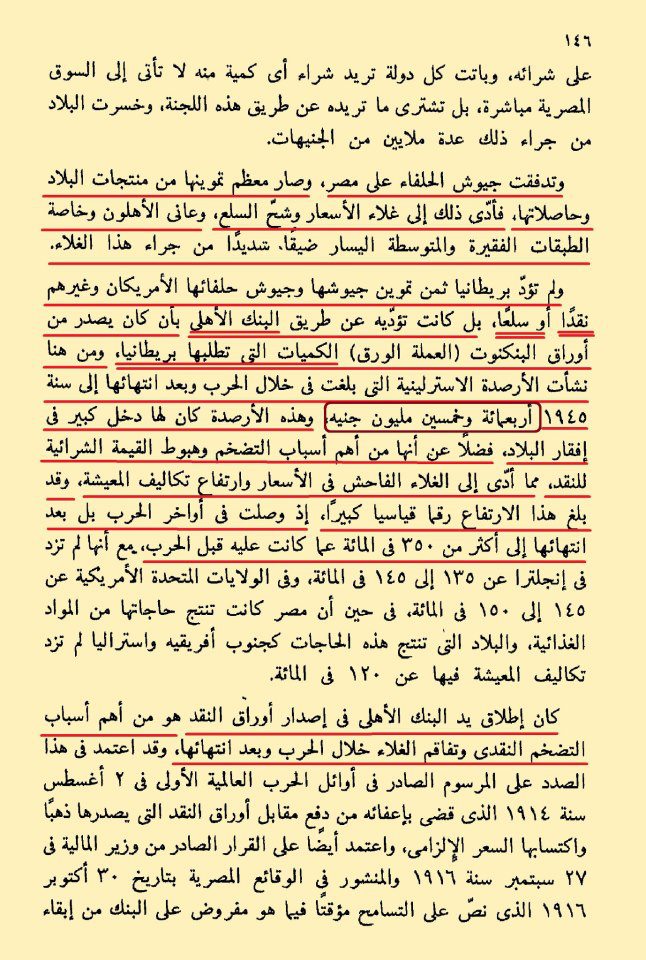 ١٤٦
على شرائه، وباتت كل دولة تريد شراء أى كمية منه لا تأتى إلى السوق
المصرية مباشرة، بل تشترى ما تريده عن طريق هذه اللجنة، وخسرت البلاد
من جراء ذلك عدة ملايين من الجنيهات.
وتدفقت جيوش الحلفاء على مصر، وصار معظم تموينها من منتجات البلاد
وحاصلاتها، فأدّى ذلك إلى غلاء الأسعار وشحّ السلع، وعانى الأهلون وخاصة
الطبقات الفقيرة والمتوسطة اليسار ضيقًا شديدًا من جراء هذا الغلاء.
ولم تؤدّ بريطانيا ثمن تموين جيوشها وجيوش حلفائها الأمريكان وغيرهم
نقدًا أو سلعًا، بل كانت تؤدّيه عن طريق البنك الأهلى بأن كان يصدر من
أوراق البنكنوت (العملة الورق) الكميات التى تطلبها بريطانيا، ومن هنا
نشأت الأرصدة الاسترلينية التى بلغت فى خلال الحرب وبعد انتهائها إلى سنة
١٩٤٥ أربعمائة وخمسين مليون جنيه، وهذه الأرصدة كان لها دخل كبير فى
إفقار البلاد، فضلًا عن أنها من أهم أسباب التضخم وهبوط القيمة الشرائية
للنقد، مما أدّى إلى الغلاء الفاحش فى الأسعار وارتفاع تكاليف المعيشة، وقد
بلغ هذا الارتفاع رقما قياسيا كبيرًا، إذ وصلت فى أواخر الحرب بل بعد
انتهائها إلى أكثر من ٣٥٠ فى المائة عما كانت عليه قبل الحرب، مع أنها لم تزد
فى إنجلترا عن ١٣٥ إلى ١٤٥ فى المائة، وفى الولايات المتحدة الأمريكية عن
١٤٥ إلى ١٥٠ فى المائة، فى حين أن مصر كانت تنتج حاجاتها من المواد
الغذائية، والبلاد التى تنتج هذه الحاجات كجنوب أفريقيه واستراليا لم تزد
تكاليف المعيشة فيها عن ١٢٠ فى المائة.
كان إطلاق يد البنك الأهلى فى إصدار أوراق النقد هو من أهم أسباب
التضخم النقدى وتفاقم الغلاء خلال الحرب وبعد انتهائها، وقد اعتمد فى هذا
الصدد على المرسوم الصادر فى أوائل الحرب العالمية الأولى فى ٢ أغسطس
سنة ١٩١٤ الذى قضى بإعفائه من دفع مقابل أوراق النقد التى يصدرها ذهبًا
واكتسابها السعر الإلزامى، واعتمد أيضًا على القرار الصادر من وزير المالية فى
٢٧ سبتمبر سنة ١٩١٦ والمنشور فى الوقائع المصرية بتاريخ ٣٠ أكتوبر
١٩١٦ الذى نصّ على التسامح مؤقتًا فيما هو مفروض على البنك من إبقاء